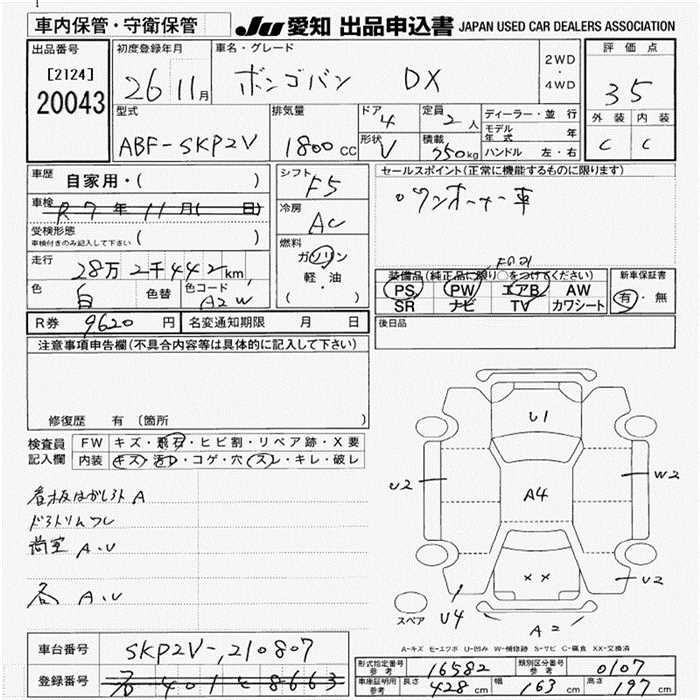 車内保管・守衛保管
JU 愛知 出品申込書 JAPAN USED CAR DEALERS ASSOCIATION
出品番号
[2124]
20043
初度登録年月
26 11月
車名・グレード
ボンゴバン DX
2WD
・
4WD
評価点
35
外装 内装
C C
型式
ABF-SKP2V
排気量
1800 CC
ドア
4
形状
V
定員
2人
積載
750kg
ディーラー・並行
モデル年式 年
ハンドル 左・右
車歴 自家用・( )
車検 R7年11月( 日)
受検形態
車検付きのみ記入して下さい ( )
走行
28万2千442km
色
白
色替
色コード
A2W
シフト
F5
冷房
AC
燃料
ガソリン
軽・油
( )
セールスポイント(正常に機能するものに限ります)
・ワンオーナー車
装備品(純正品に限り○をつけてください)
PS PW エアB AW
SR ナビ TV カワシート
新車保証書
有・無
後日品
R券 9620円
名変通知期限 月 日
注意事項申告欄(不具合内容等は具体的に記入して下さい)
修復歴 有 (箇所 )
検査員
記入欄
FW キズ・飛石・ヒビ割・リペア跡・X要
内装 キズ・汚れ・コゲ・穴・スレ・キレ・破レ
看板はがし跡 A
荷室 A.U
各 A.U
U1
U2
A4
W2
XX
U2
U4
A2
スペア
A-キズ E-エクボ U-凹み W-補修跡 S-サビ C-腐食 XX-交換済
車台番号 SKP2V-210807
登録番号 401 8663
形式指定番号
参考
16582
類別区分番号
参考
0107
車庫証明用
参考
長さ 428cm 幅 163cm 高さ 197cm